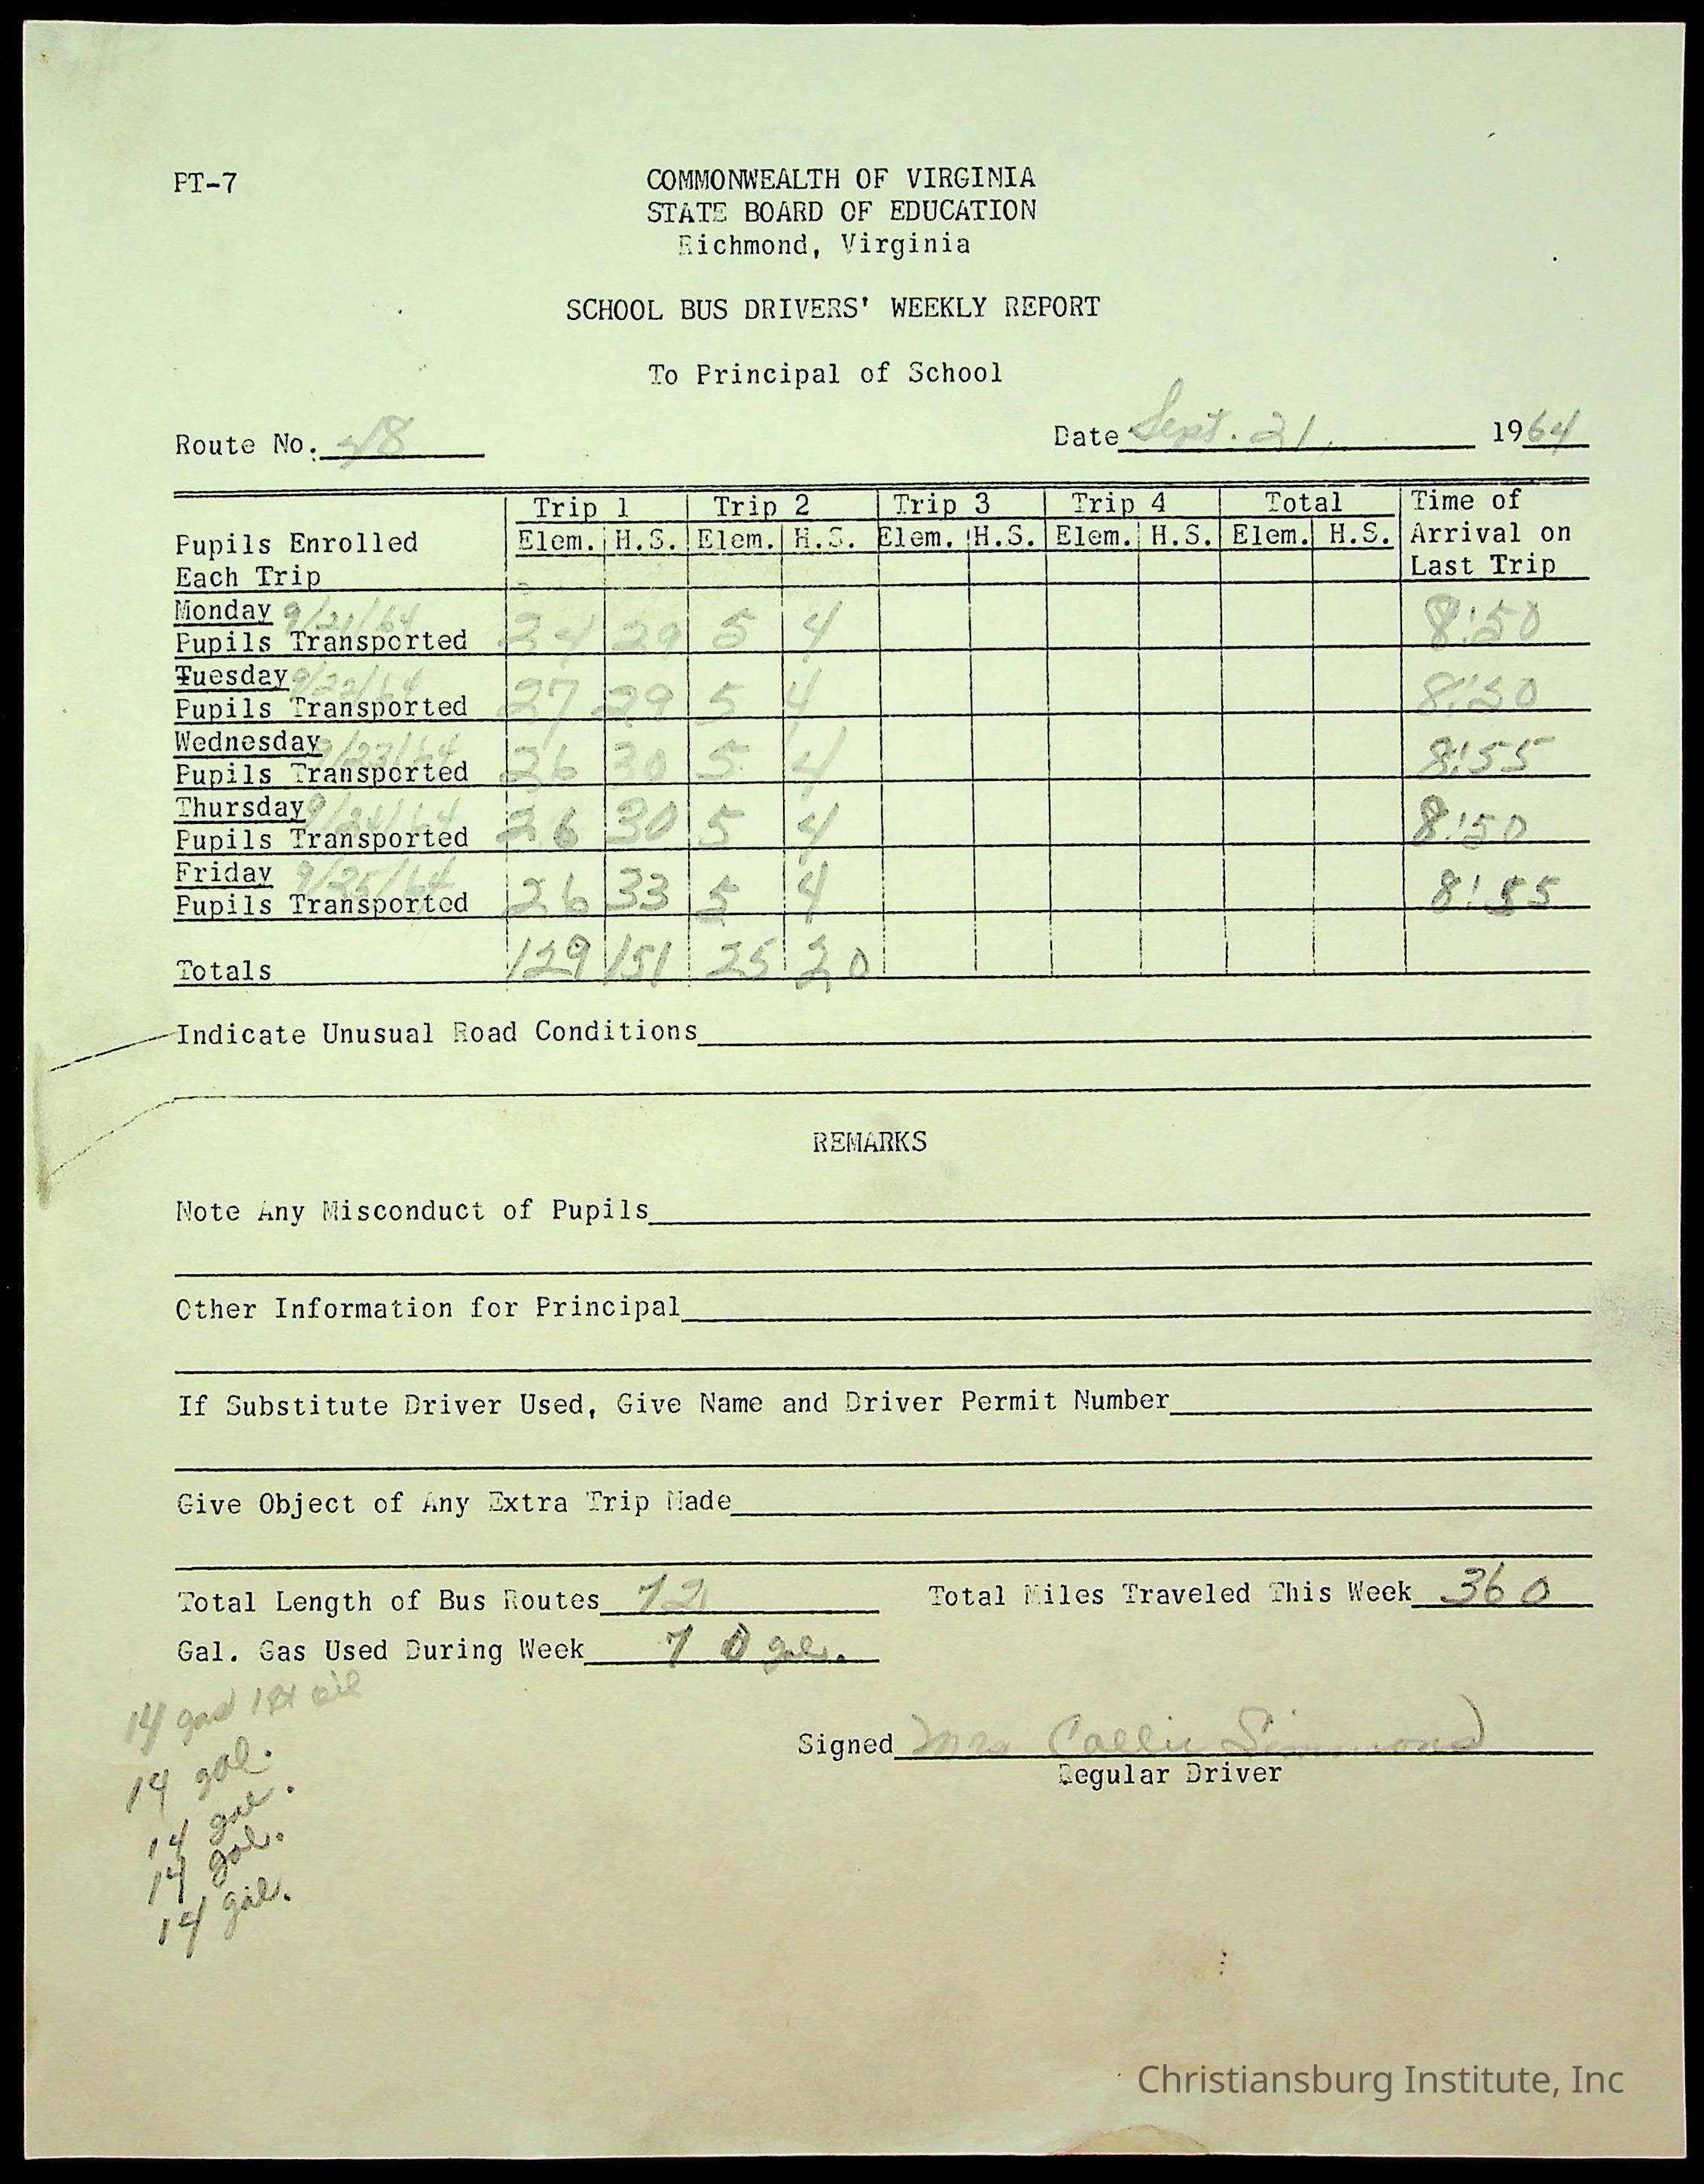 PT-7
COMMONWEALTH OF VIRGINIA
STATE BOARD OF EDUCATION
Richmond, Virginia
SCHOOL BUS DRIVERS' WEEKLY REPORT
To Principal of School
Route No. 48 Date Sept. 21, 1964
Trip 1 Trip 2 Trip 3 Trip 4 Total Time of
Pupils Enrolled Elem. H.S. Elem. H.S. Elem. H.S. Elem. H.S. Elem. H.S. Arrival on
Each Trip Last Trip
Monday 9/21/64
Pupils Transported 24 29 5 4 8:50
Tuesday 9/22/64
Pupils Transported 27 29 5 4 8:50
Wednesday 9/23/64
Pupils Transported 26 30 5 4 8:55
Thursday 9/24/64
Pupils Transported 26 30 5 4 8:50
Friday 9/25/64
Pupils Transported 26 33 5 4 8:55
Totals 129 151 25 20
Indicate Unusual Road Conditions
REMARKS
Note Any Misconduct of Pupils
Other Information for Principal
If Substitute Driver Used, Give Name and Driver Permit Number
Give Object of Any Extra Trip Made
Total Length of Bus Routes 72 Total Miles Traveled This Week 360
Gal. Gas Used During Week 70 gal.
14 gas 1qt oil
14 gal.
14 gal.
14 gal.
14 gal.
Signed Mrs Callie Simmons
Regular Driver
Christiansburg Institute, Inc